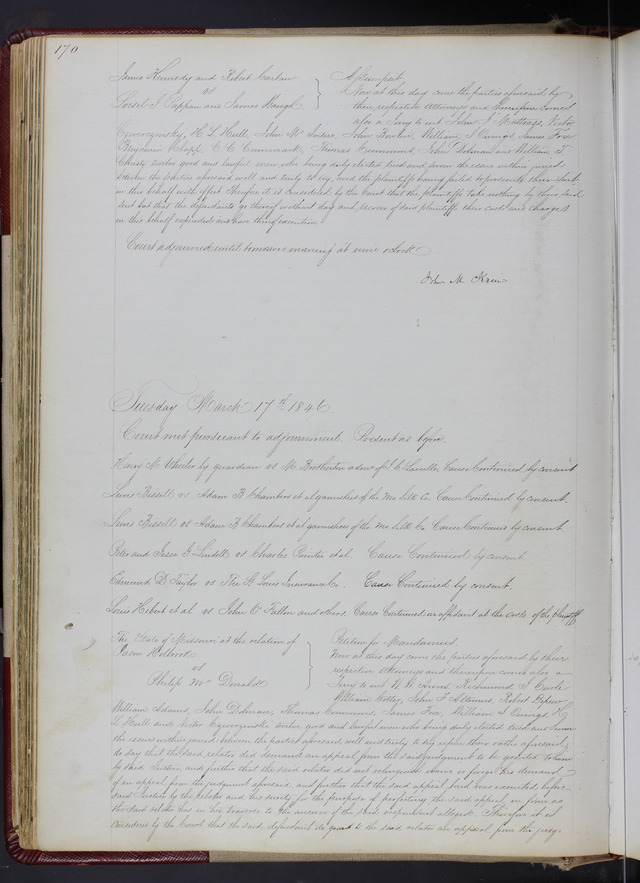 170
James Kennedy and Robert
vs
and James Waugh
Assumpsit
Now at this day come the parties aforesaid by
their respective Attorneys and thereupon comes
also a Jury to wit John
H. L. Hull, John Mc John William S. James Fox
Benjamin Clapp, C. C. Cammack, Thomas John Dolman and William T.
Christy twelve good and lawful men who being duly elected tried and sworn the issue within joined
between the parties aforesaid well and truly to try, and the plaintiffs having failed to prosecute their suit
in this behalf with effect Therefore it is considered by the Court that the plaintiffs take nothing by their said
suit but that the defendants go thereof without day and recover of said plaintiffs their costs and charges
in this behalf expended and have thereof execution.
Court adjourned until tomorrow morning at nine oclock.
John M. Krum
Tuesday March 17th 1846.
Court met pursuant to adjournment. Present as before
Henry M. by guardian vs M. Brotherton admr of Cause Continued by consent
Lewis Bissell vs Adam B. Chambers et al garnishees of the Mo Silk Co. Cause Continued by consent.
Lewis Bissell vs Adam B. Chambers et al garnishees of the Mo Silk Co Cause Continued by consent
Peter and Jesse G. Lindell vs Charles et al. Cause Continued by consent
Edmund D. Taylor vs The St. Louis Insurance Co. Cause Continued by consent.
Louis Hebert et al vs John O Fallon and Cause Continued on affidavit at the costs of the plaintiff
The State of Missouri at the relation of
Jason Holbrook
vs
Philip Mc Donald
Petition for Mandamus,
Now at this day come the parties aforesaid by their
respective Attorneys and thereupon comes also a
Jury to wit W. W. Richmond J.
William John F. Robert
William Adams, John Dolman, Thomas James Fox, William S. H
L Hull and Victor twelve good and lawful men who being duly elected tried and sworn
the issues within joined between the parties aforesaid well and truly to try upon their oaths aforesaid
do say that the said relator did demand an appeal from the said judgment to be granted
to said Justice, and further that the said relator did not relinquish waive or forego his demand
of an appeal from the judgment aforesaid, and further that the said appeal bond was executed before
said Justice by the relator and his surety for the purpose of perfecting the said appeal in form as
the said relator has in his traverse to the answer of the said respondent alleged. Therefore it is
considered by the Court that the said defendant do grant to the said relator an appeal from the judg-